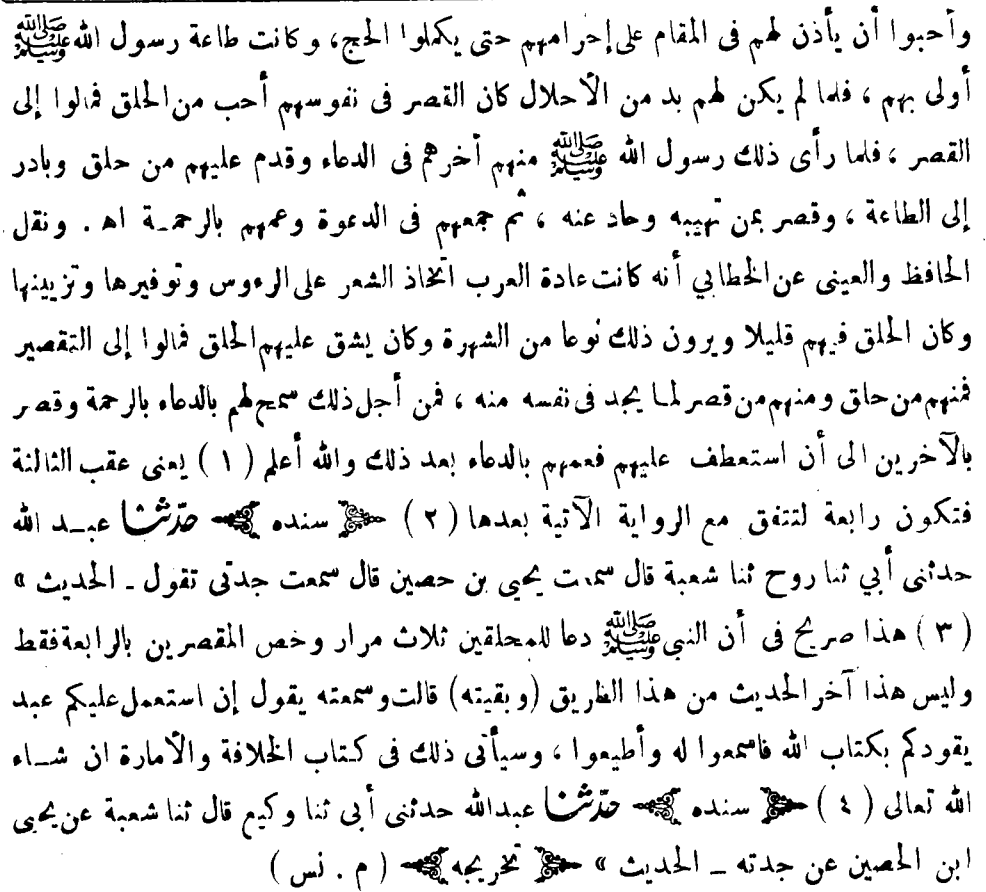 وأحبوا أن يأذن لهم فى المقام على إحرامهم حتى يكملوا الحج، وكانت طاعة رسول الله ﷺ
أولى بهم ، فلما لم يكن لهم بد من الأحلال كان القصر فى نفوسهم أحب من الحلق فمالوا إلى
القصر ، فلما رأى ذلك رسول الله ﷺ منهم أخرهم فى الدعاء وقدم عليهم من حلق وبادر
إلى الطاعة ، وقصر بمن تهيبه وحاد عنه ، ثم جمعهم فى الدعوة وعمهم بالرحمـة اهـ . ونقل
الحافظ والعينى عن الخطابي أنه كانت عادة العرب اتخاذ الشعر على الرءوس وتوفيرها وتزيينها
وكان الحلق فيهم قليلا ويرون ذلك نوعا من الشهرة وكان يشق عليهم الحلق فمالوا إلى التقصير
فمنهم من حلق ومنهم من قصر لمـا يجد فى نفسه منه ، فمن أجل ذلك سمح لهم بالدعاء بالرحمة وقصر
بالآخرين الى أن استعطف عليهم فعمهم بالدعاء بعد ذلك والله أعلم ( ١ ) يعنى عقب الثالثة
فتكون رابعة لتتفق مع الرواية الآتية بعدها ( ٢ ) ﴿ سنده ﴾ حدّثنا عبـد الله
حدثنى أبي ثنا روح ثنا شعبة قال سمعت يحيى بن حصين قال سمعت جدتى تقول ـ الحديث »
( ٣ ) هذا صريح فى أن النبي ﷺ دعا للمحلقين ثلاث مرار وخص المقصرين بالرابعة فقط
وليس هذا آخر الحديث من هذا الطريق (وبقيته) قالت وسمعته يقول إن استعمل عليكم عبد
يقودكم بكتاب الله فاسمعوا له وأطيعوا ، وسيأتى ذلك فى كتاب الخلافة والأمارة ان شـاء
الله تعالى ( ٤ ) ﴿ سنده ﴾ حدّثنا عبدالله حدثنى أبى ثنا وكيع قال ثنا شعبة عن يحيى
ابن الحصين عن جدته ـ الحديث » ﴿ تخريجه ﴾ ( م . نس )